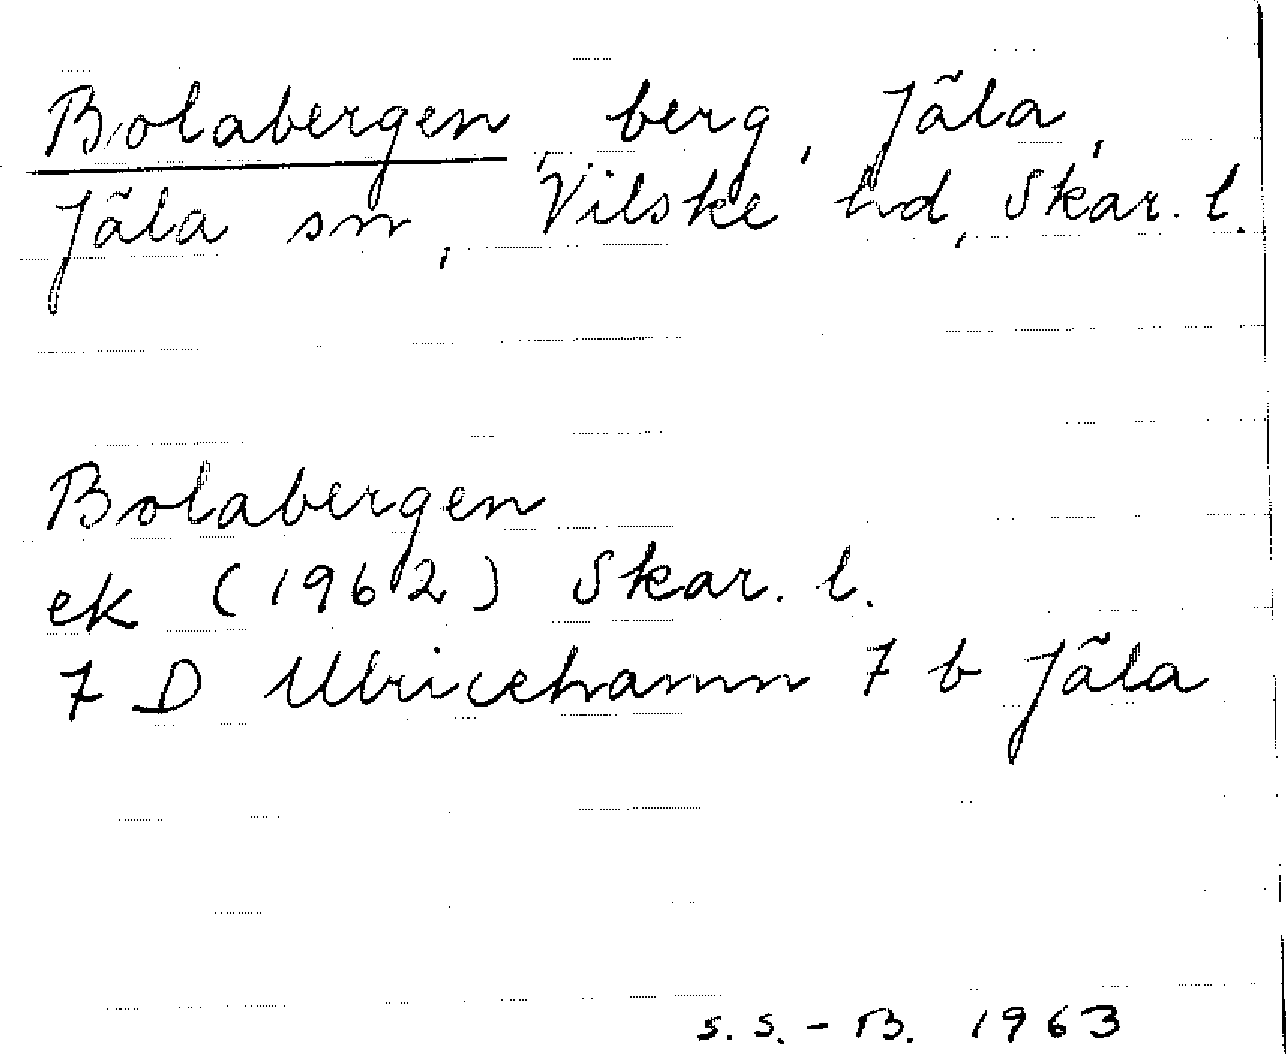 Bolabergen, berg, Jäla,
Jäla sn, Vilske hd, Skar. l.
Bolabergen
ek (1962) Skar. l.
7 D Ulricehamn 7 b Jäla
S. S. - B. 1963